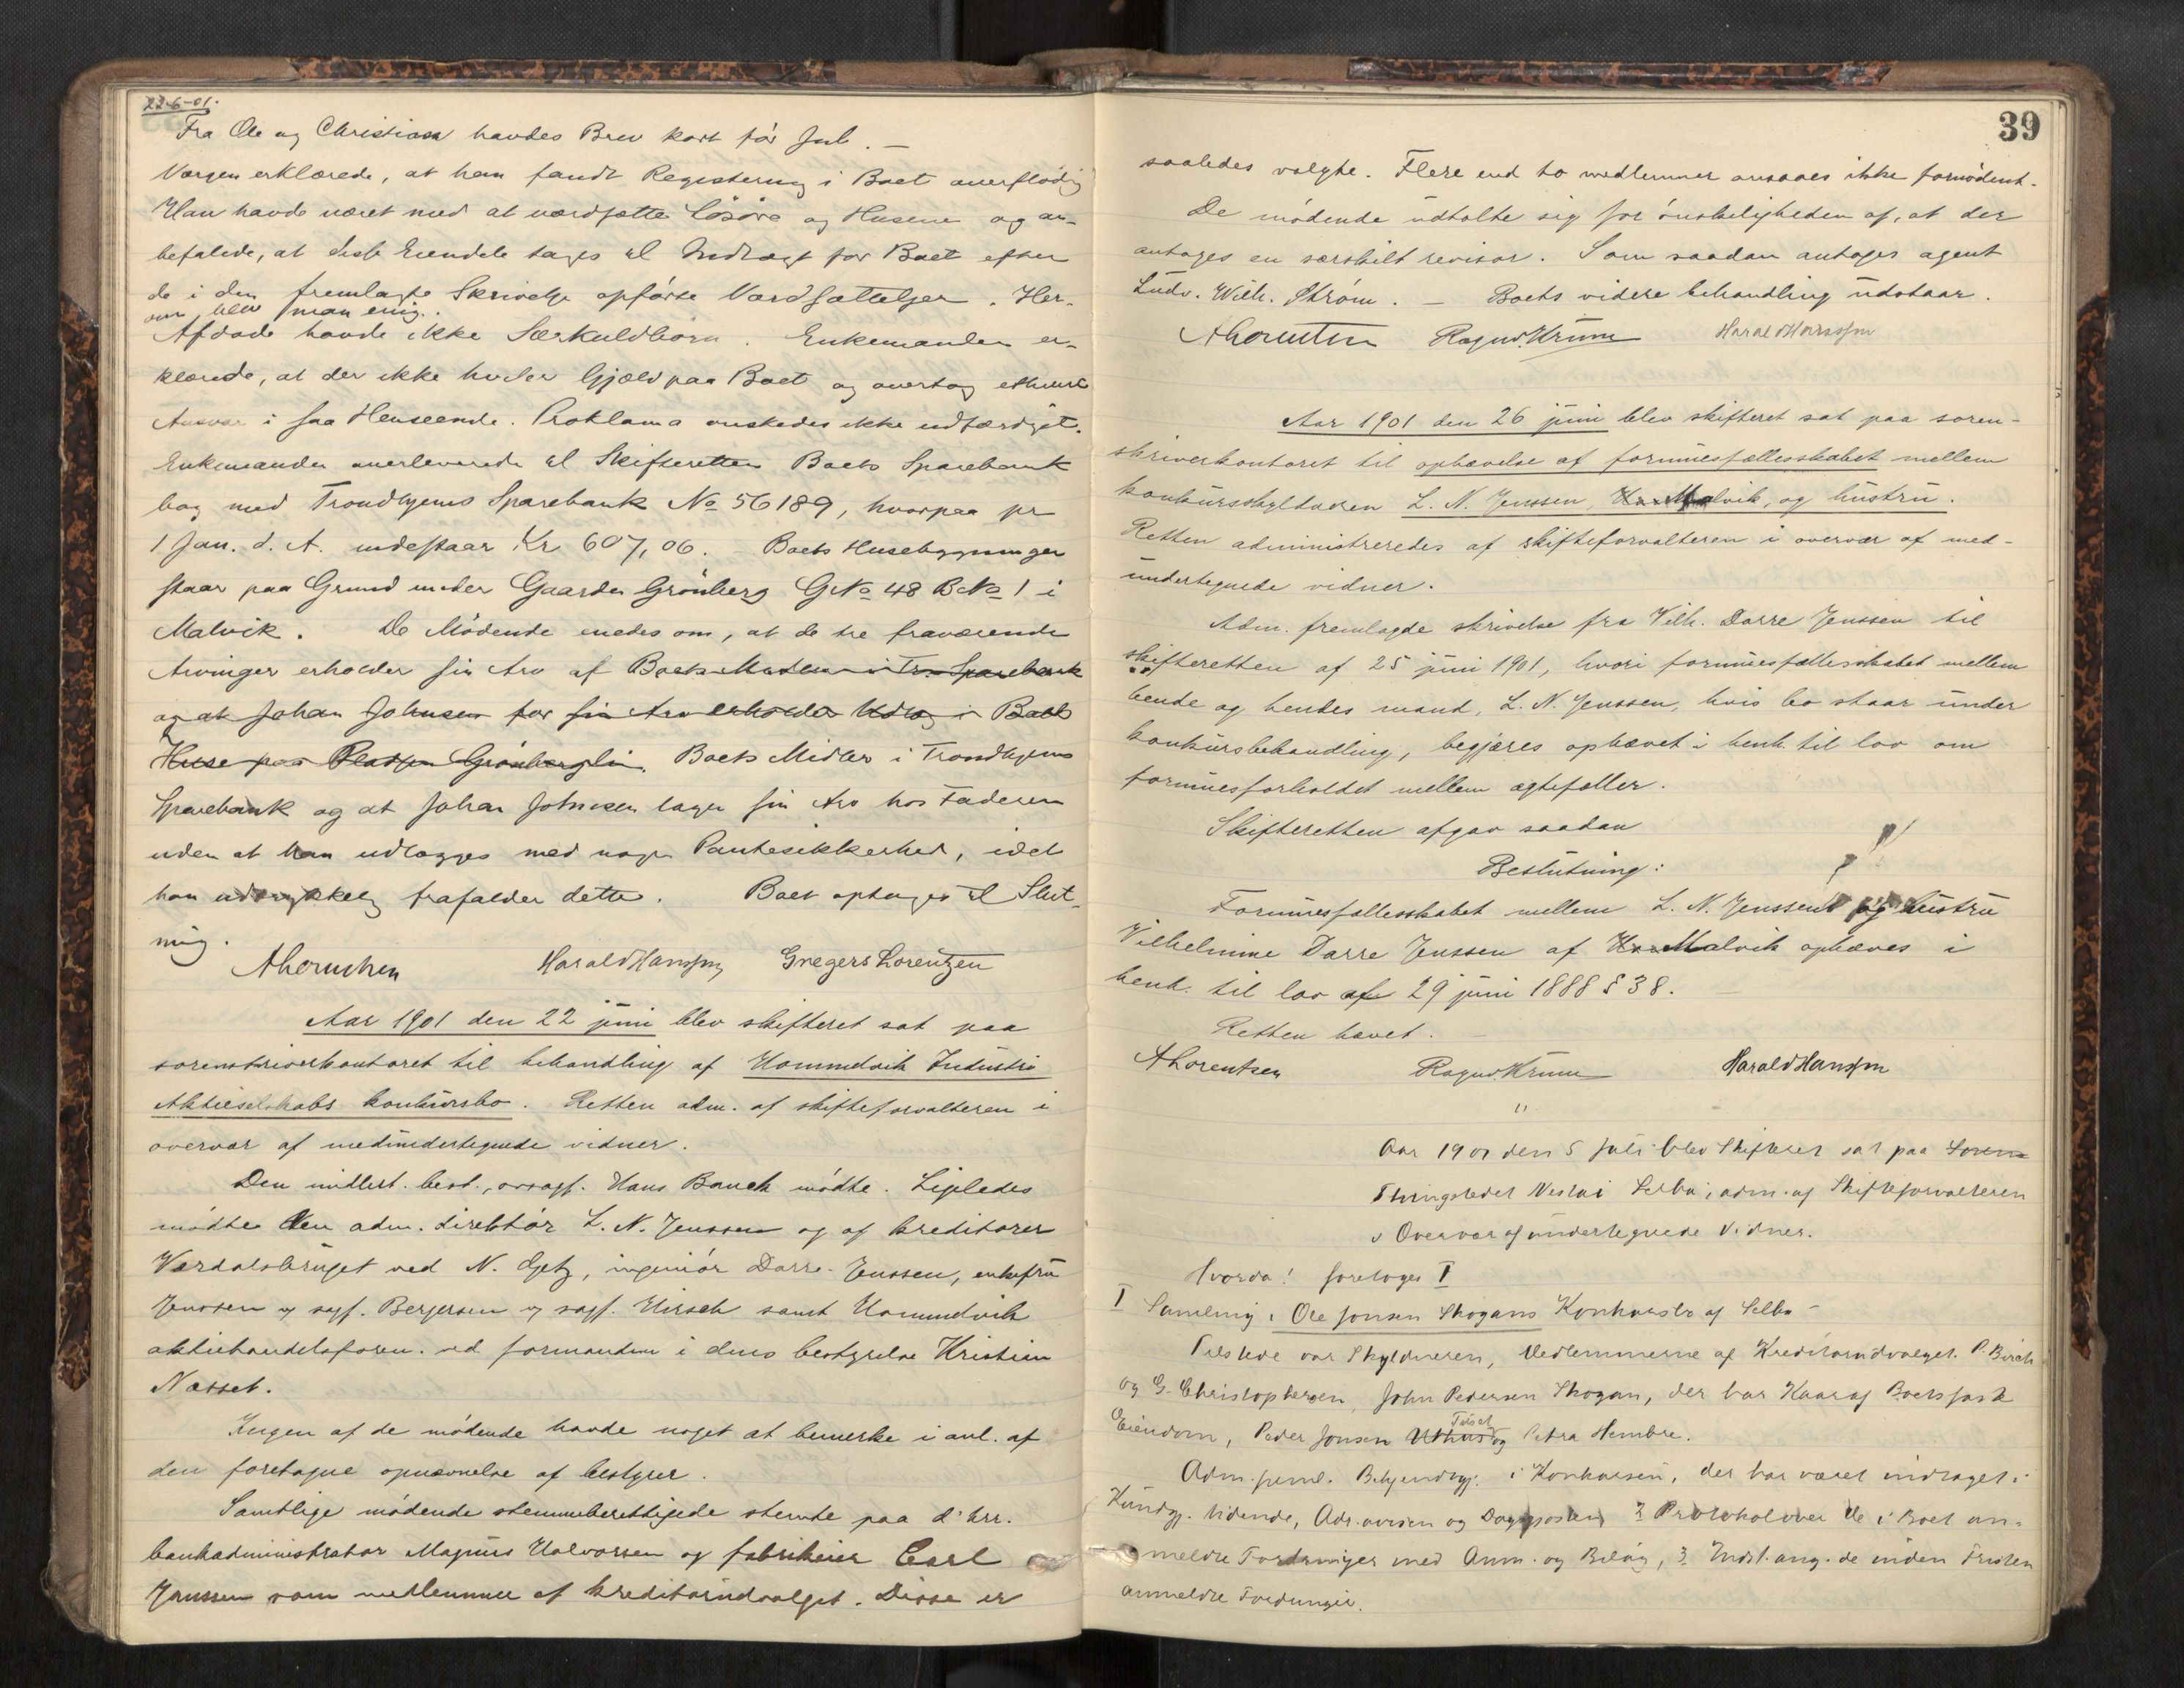 22-6-01.
Fra Ole og Christian havdes Brev kort før Jul. —
Værgen erklærede, at han fandt Registering i Boet overflødig
Han havde været med at værdsætte Løsøre og Husene og an-
befalede, at disse Eiendele tages til Indtægt for Boet efter
de i den fremlagte Skrivelse opførte Værdsættelser. Her-
om blev man enig.
Afdøde havde ikke Særkuldbørn. Enkemanden er-
klærede, at der ikke hviler Gjæld paa Boet og overtog ethvert
Ansvar i saa Henseende. Proklama ønskedes ikke udfærdiget.
Enkemanden overleverede til Skifteretten Boets Sparebank
bog med Trondhjems Sparebank No 56189, hvorpaa pr
1 Jan. d. A. indestaar Kr 607,06. Boets Husebygninger
staar paa Grund under Gaarden Grønberg GNo 48 BNo 1 i
Malvik. De Mødende enedes om, at de tre fraværende
Arvinger erholder sin Arv af Boets Midler i Tr. Sparebank
og at Johan Johnsen for sin Arv erholder Udlæg i Boets
Huse paa Pladsen Grønberglien. Boets Midler i Trondhjems
Sparebank og at Johan Johnsen tager sin Arv hos Faderen
uden at han udlægges med nogen Pantesikkerhed, idet
han udtrykkelig frafalder dette. Boet optages til Slut-
ning.
A Lorentzen Harald Hanssen Gregers Lorentzen
Aar 1901 den 22 juni blev skifteret sat paa
sorenskriverkontoret til behandling af Hommelvik Industri
Aktieselskabs konkursbo. Retten adm. af skifteforvalteren i
overvær af medundertegnede vidner.
Den midlert. best., overretssagf. Hans Bauck mødte. Ligeledes
mødte den adm. direktør L. N. Jenssen og af kreditorer
Værdalsbruget ved N. Getz, ingeniør Darre-Jenssen, enkefru
Jenssen og sagf. Bergersen og sagf. Hirsch samt Hommelvik
aktiehandelsforen. ved formanden i dens bestyrelse Kristian
Næsset.
Ingen af de mødende havde noget at bemerke i anl. af
den foretagne opnævnelse af bestyrer.
Samtlige mødende stemmeberettigede stemte paa d'hrr.
bankadministrator Magnus Halvorsen og fabrikeier Carl
Jenssen som medlemmer af kreditorudvalget. Disse er
39
saaledes valgte. Flere end to medlemmer ansaaes ikke fornødent.
De mødende udtalte sig for ønskeligheden af, at der
antages en særskilt revisor. Som saadan antages agent
Ludv. Wilh. Strøm. — Boets videre behandling udstaar.
A Lorentzen Ragnv. Krum Harald Hanssen
Aar 1901 den 26 juni blev skifteret sat paa soren-
skriverkontoret til ophævelse af formuesfællesskabet mellem
konkursskyldneren L. N. Jenssen, Malvik, og hustru.
Retten administreredes af skifteforvalteren i overvær af med-
undertegnede vidner.
Adm. fremlagde skrivelse fra Vilh. Darre Jenssen til
skifteretten af 25 juni 1901, hvori formuesfællesskabet mellem
hende og hendes mand, L. N. Jenssen, hvis bo staar under
konkursbehandling, begjæres ophævet i henh. til lov om
formuesforholdet mellem ægtefæller.
Skifteretten afgav saadan
Beslutning:
Formuesfællesskabet mellem L. N. Jenssen og hustru
Vilhelmine Darre Jenssen af Malvik ophæves i
henh. til lov af 29 juni 1888 § 38.
Retten hævet.
A Lorentzen Ragnv. Krum Harald Hanssen
"
Aar 1901 den 5 Juli blev Skifteret sat paa Soren
Thingstedet Nesta i Selbu, adm. af Skifteforvalteren
i Overvær af undertegnede Vidner.
Hvorda! foretoges I
I Samling i Ole Jonsen Skogans Konkursbo af Selbu —
Tilstede var Skyldneren, Medlemmerne af Kreditorudvalget. P. Birch
og G. Christophersen, John Pedersen Skogan, der har Kaar af Boets faste
Eiendom, Peder Jonsen Uthus og Petra Hembre.
Adm. freml. Bekjendtgj. i Konkursen, der har været indtaget i
Kundgj. tidende, Adr. avisen og Dagsposten 2 Protokol over de i Boet an-
meldte Fordringer med Anm. og Bilag, 3 Indst. ang. de inden Fristen
anmeldte Fordringer.